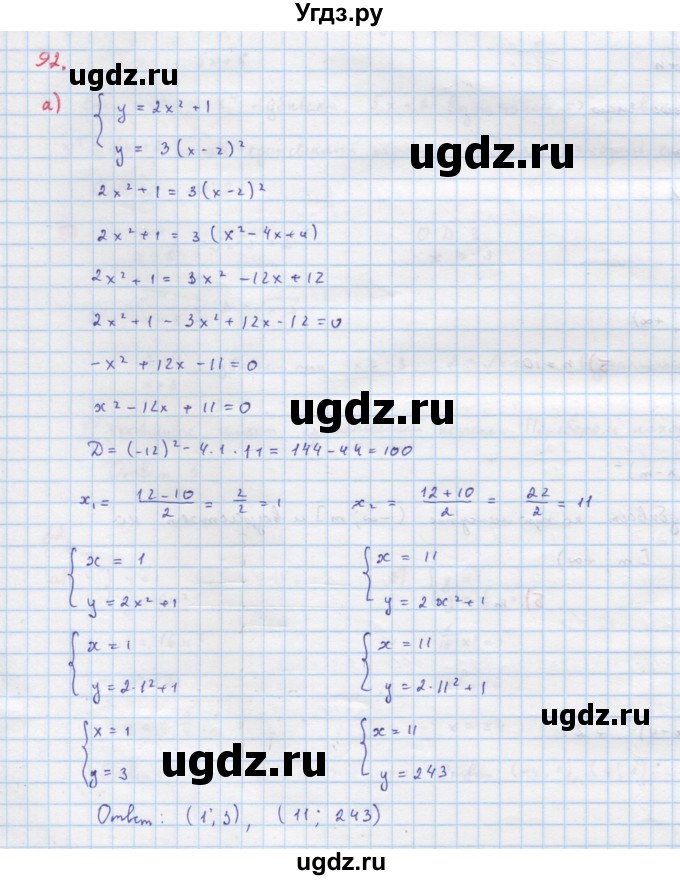 Угдз.ру
92.
ugdz.ru
а) { y = 2x² + 1
y = 3(x - 2)²
ugdz.ru
2x² + 1 = 3(x - 2)²
2x² + 1 = 3(x² - 4x + 4)
2x² + 1 = 3x² - 12x + 12
2x² + 1 - 3x² + 12x - 12 = 0
-x² + 12x - 11 = 0
x² - 12x + 11 = 0
ugdz.ru
D = (-12)² - 4·1·11 = 144 - 44 = 100
x₁ = (12 - 10)/2 = 2/2 = 1 x₂ = (12 + 10)/2 = 22/2 = 11
{ x = 1 { x = 11
y = 2x² + 1 y = 2x² + 1
{ x = 1 { x = 11
y = 2·1² + 1 y = 2·11² + 1
ugdz.ru
{ x = 1 { x = 11
y = 3 y = 243
ugdz.ru
Ответ: (1; 3), (11; 243)
ugdz.ru